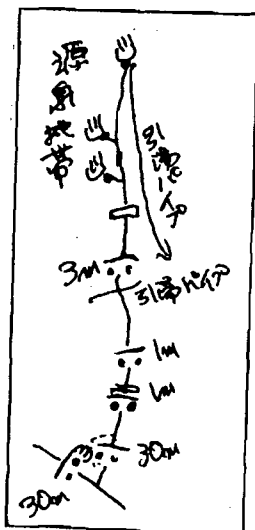 源泉地帯
引湯パイプ
3m
引湯パイプ
1m
1m
30m
30m